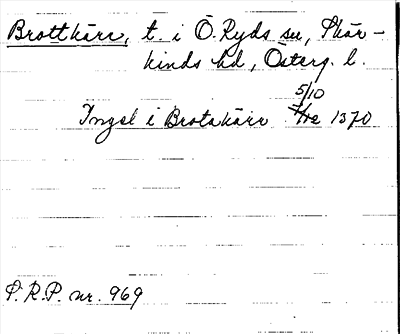 Brottkärr, t. i Ö. Ryds sn, Skär-
kinds hd, Österg. l.
5/10
Ingel i Brotakärr 1370
P.R.P. nr. 969